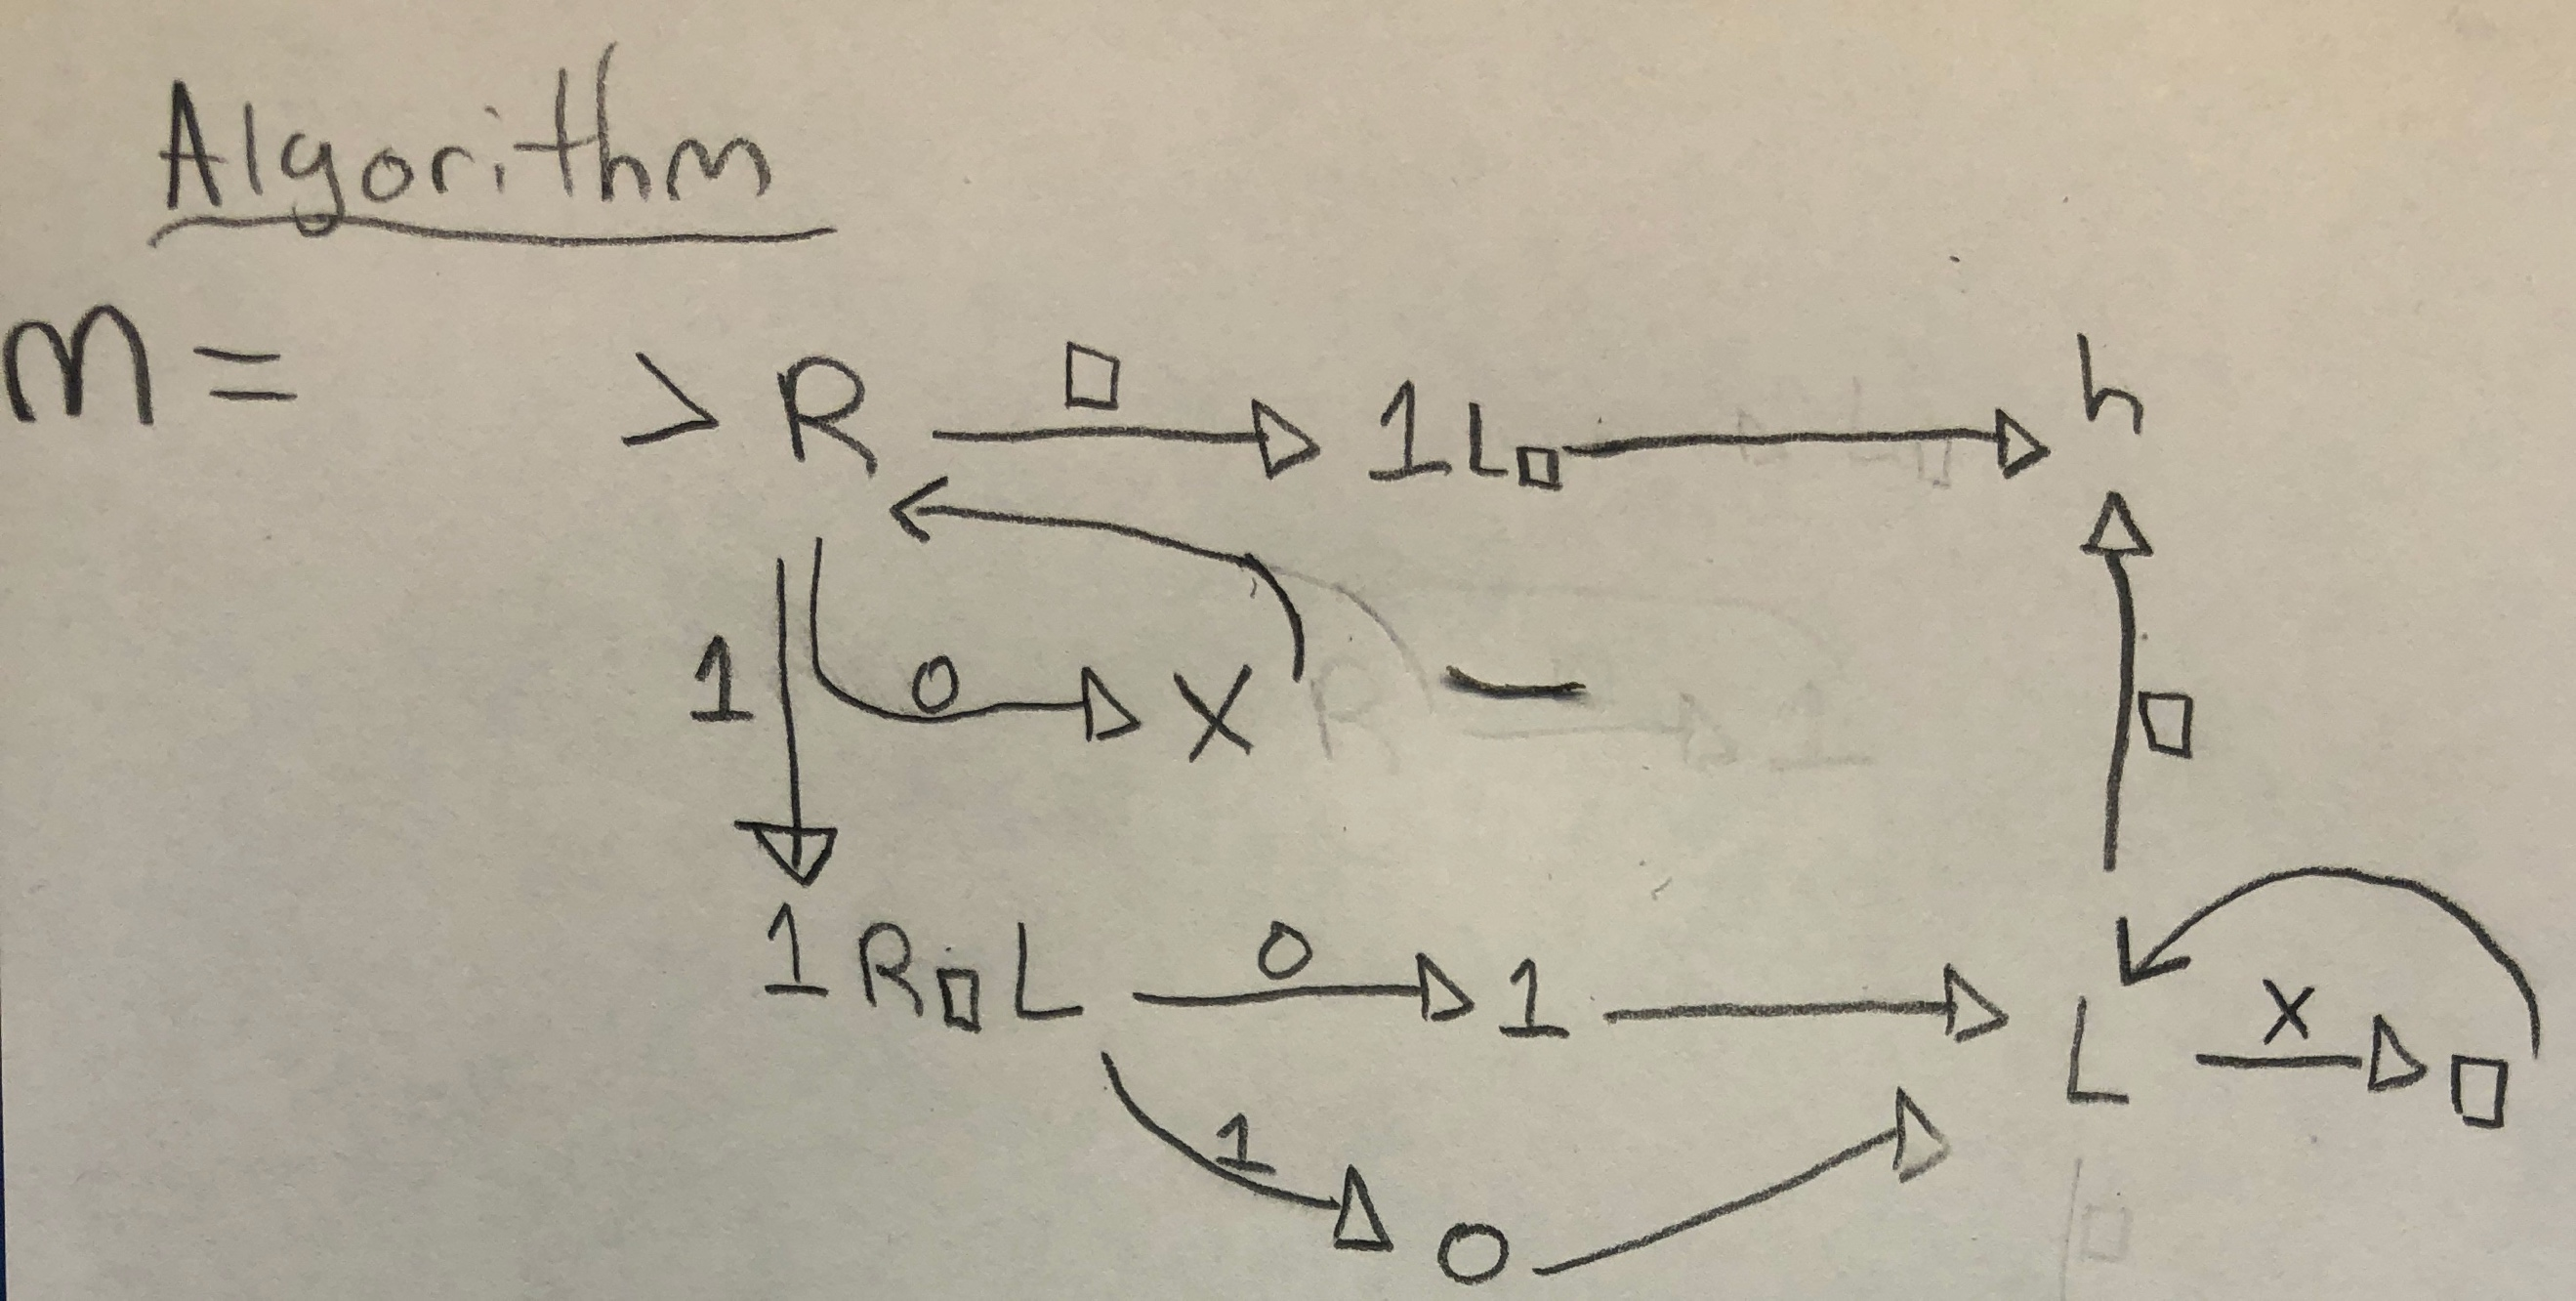 Algorithm
M = > R □ 1L□ h
1 0 X □
1R□L 0 1 L X □
1 0